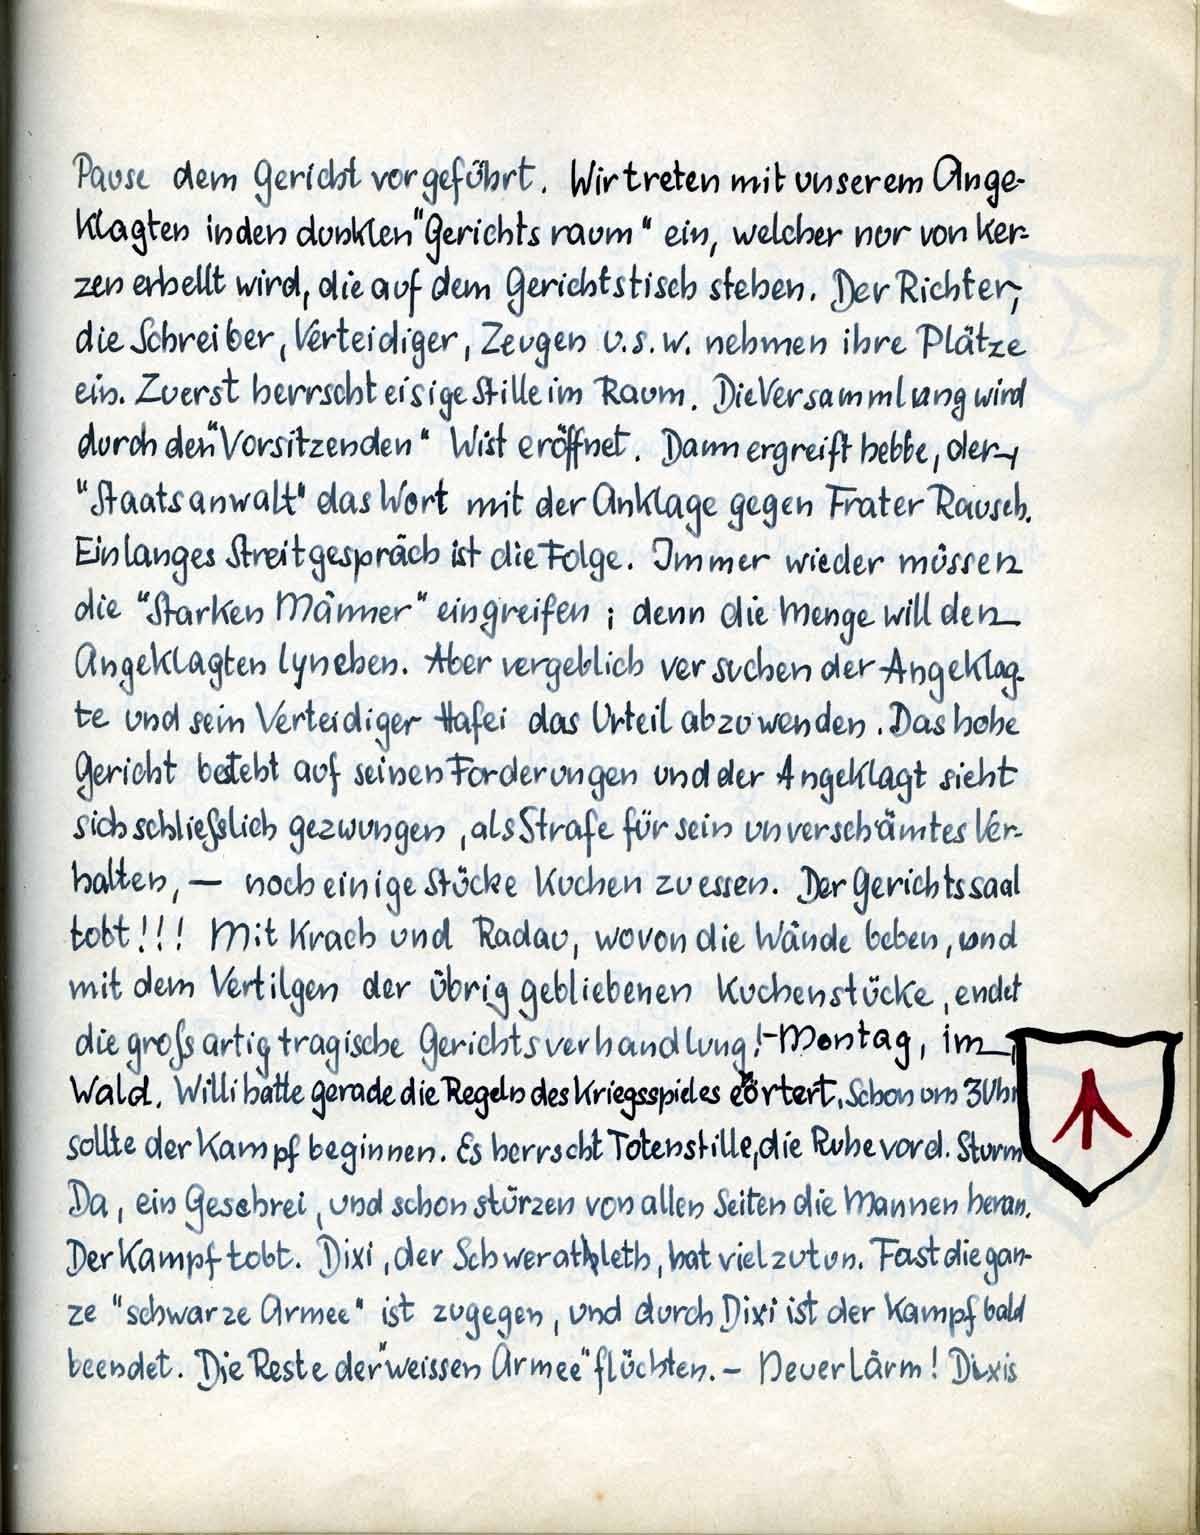 Pause dem Gericht vorgeführt. Wir treten mit unserem Ange-
klagten in den dunklen "Gerichtsraum" ein, welcher nur von Ker-
zen erhellt wird, die auf dem Gerichtstisch stehen. Der Richter,
die Schreiber, Verteidiger, Zeugen u.s.w. nehmen ihre Plätze
ein. Zuerst herrscht eisige Stille im Raum. Die Versammlung wird
durch den "Vorsitzenden" Wist eröffnet. Dann ergreift hebbe, der
"Staatsanwalt" das Wort mit der Anklage gegen Frater Rausch.
Ein langes Streitgespräch ist die Folge. Immer wieder müssen
die "Starken Männer" eingreifen; denn die Menge will den
Angeklagten lynchen. Aber vergeblich versuchen der Angeklag-
te und sein Verteidiger Hafei das Urteil abzuwenden. Das hohe
Gericht besteht auf seinen Forderungen und der Angeklagt sieht
sich schließlich gezwungen, als Strafe für sein unverschämtes Ver-
halten, — noch einige Stücke Kuchen zu essen. Der Gerichtssaal
tobt!!! Mit Krach und Radau, wovon die Wände beben, und
mit dem Vertilgen der übrig gebliebenen Kuchenstücke, endet
die großartig tragische Gerichtsverhandlung! - Montag, im
Wald. Willi hatte gerade die Regeln des Kriegsspieles erörtert. Schon um 3 Uhr
sollte der Kampf beginnen. Es herrscht Totenstille, die Ruhe vor d. Sturm
Da, ein Geschrei, und schon stürzen von allen Seiten die Mannen heran.
Der Kampf tobt. Dixi, der Schwerathleth, hat viel zu tun. Fast die gan-
ze "schwarze Armee" ist zugegen, und durch Dixi ist der Kampf bald
beendet. Die Reste der "weissen Armee" flüchten. - Neuer Lärm! Dixis